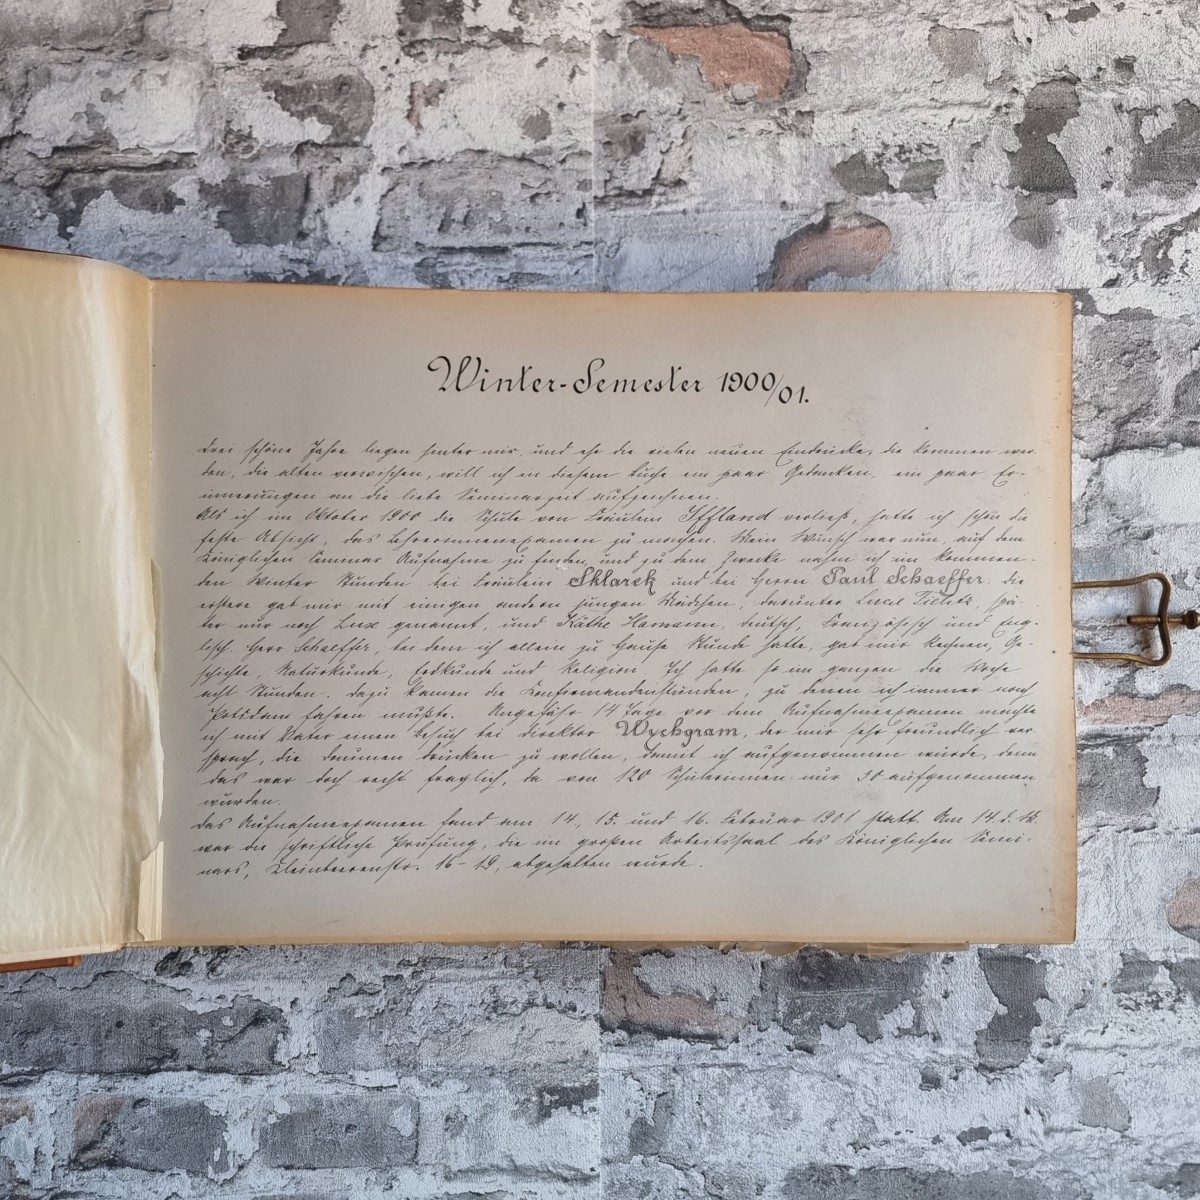 Winter-Semester 1900/01.
Drei schöne Jahre liegen hinter mir, und ehe die vielen neuen Eindrücke, die kommen wer-
den, die alten verwischen, will ich in diesem Buche ein paar Gedanken, ein paar Er-
innerungen an die liebe Seminarzeit aufzeichnen.
Als ich im Oktober 1900 die Schule von Fräulein Iffland verließ, hatte ich schon die
feste Absicht, das Lehrerinnenexamen zu machen. Mein Wunsch war nun, auf dem
Königlichen Seminar Aufnahme zu finden, und zu dem Zwecke nahm ich im kommen-
den Winter Stunden bei Fräulein Sklarek und bei Herrn Paul Schaeffer. Die
erstere gab mir mit einigen andern jungen Mädchen, darunter Lucie Tielitz, spä-
ter nur noch Luxe genannt, und Käthe Hamann, Deutsch, Französisch und Eng-
lisch. Herr Schaeffer, bei dem ich allein zu Hause Stunde hatte, gab mir Rechnen, Ge-
schichte, Naturkunde, Erdkunde und Religion. Ich hatte so im ganzen die Woche
acht Stunden. Dazu kamen die Konfirmandenstunden, zu denen ich immer nach
Potsdam fahren mußte. Ungefähr 14 Tage vor dem Aufnahmeexamen machte
ich mit Vater einen Besuch bei Direktor Wychgram, der mir sehr freundlich ver-
sprach, die Daumen drücken zu wollen, damit ich aufgenommen würde, denn
das war doch recht fraglich, da von 120 Schülerinnen nur 30 aufgenommen
wurden.
Das Aufnahmeexamen fand am 14., 15. und 16. Februar 1901 statt. Am 14. d. M.
war die schriftliche Prüfung, die im großen Arbeitssaal des Königlichen Semi-
nars, Kleinbeerenstr. 16-19, abgehalten wurde.